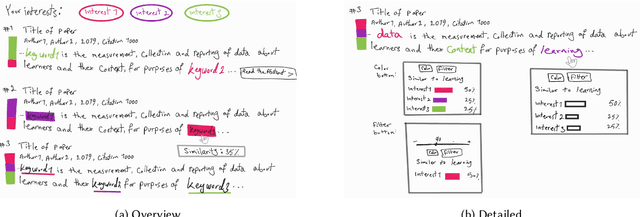 Your interests: interest 1 interest 2 interest 3
#1 Title of paper
Author1, Author2, 2019, Citation 1000
- keyword3 is the measurement, Collection and reporting of data about
learners and their Context, for purposes of keyword1 ... Read the Abstract >
#2 Title of paper
Author1, Author2, 2019, Citation 1000
is the measurement, Collection and reporting of data about
learners and their Context, for purposes of ...
Similarity: 35%
#3 Title of paper
Author1, Author2, 2019, Citation 1000
keyword1 is the measurement, Collection and reporting of data about
learners and their keyword2 for purposes of keyword3 ...
(a) Overview
#3 Title of paper
Author1, Author2, 2019, Citation 1000
- data is the measurement, Collection and reporting of data about
learners and their Context for purposes of learning...
Color
button:
Color Filter
Similar to learning
Interest 1 50%
Interest 2 25%
Interest 3 25%
Filter
button:
Color Filter
Similar to learning
Interest 1 50%
Color Filter
Similar to learning
Interest1 50%
Interest2 25%
Interest3 25%
(b) Detailed